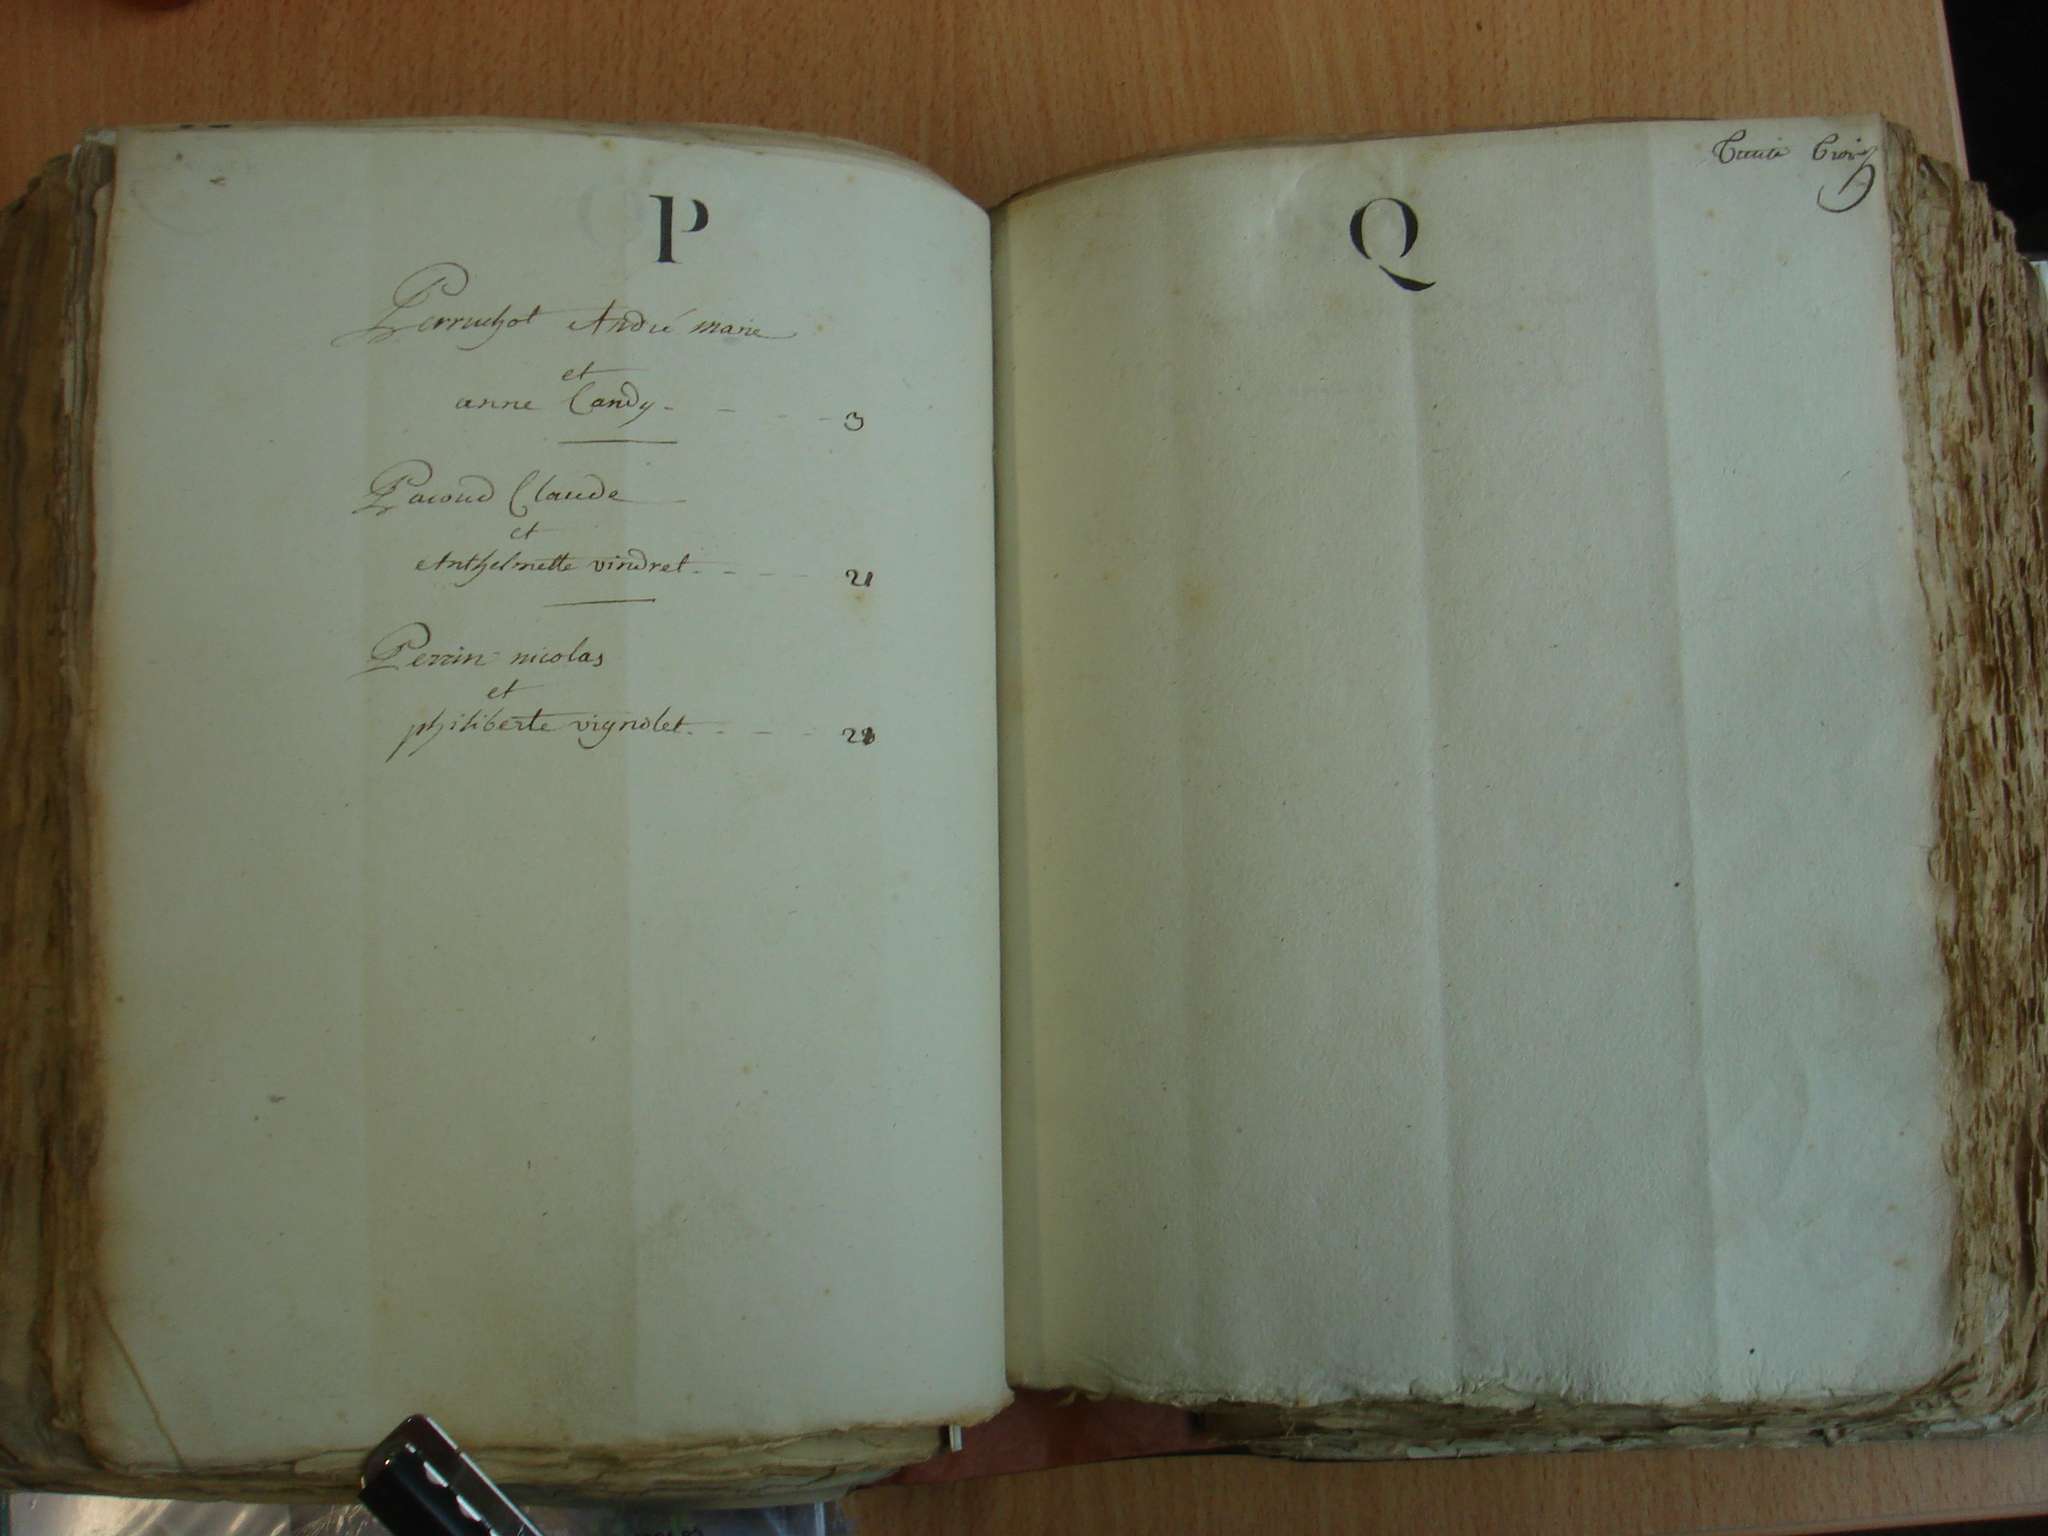 P
Perruchot André marie
et
anne Candy - - - - 3
Pacoud Claude
et
Anthelmette vindret - - - 21
Perrin nicolas
et
philiberte vignolet - - -
Q
Trente Trois